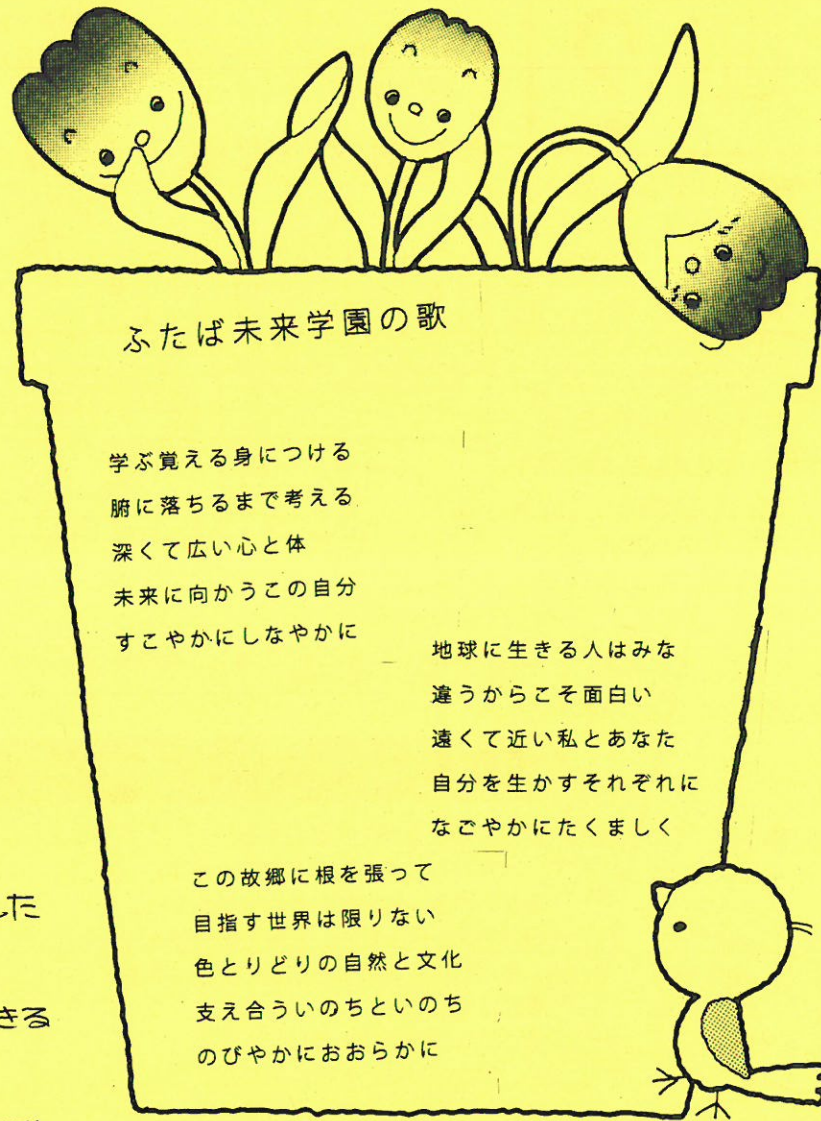 ふたば未来学園の歌
学ぶ覚える身につける
腑に落ちるまで考える
深くて広い心と体
未来に向かうこの自分
すこやかにしなやかに
地球に生きる人はみな
違うからこそ面白い
遠くて近い私とあなた
自分を生かすそれぞれに
なごやかにたくましく
この故郷に根を張って
目指す世界は限りない
色とりどりの自然と文化
支え合ういのちといのち
のびやかにおおらかに
した
きる